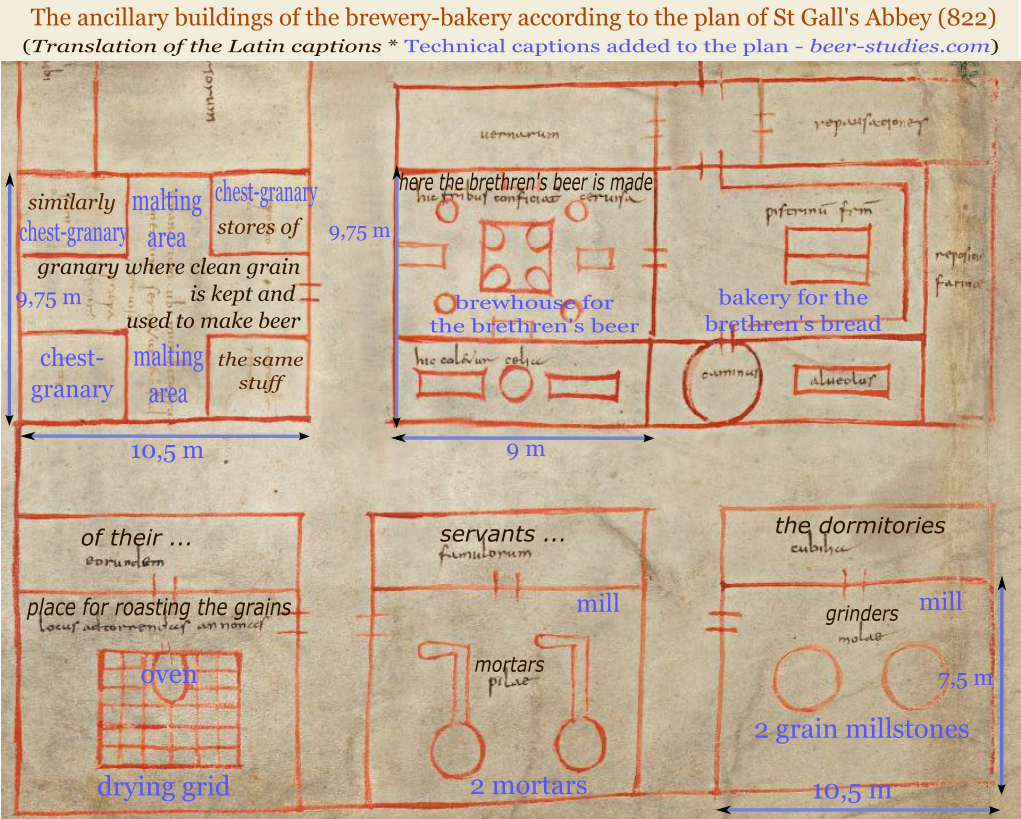 The ancillary buildings of the brewery-bakery according to the plan of St Gall's Abbey (822)
(Translation of the Latin captions * Technical captions added to the plan - beer-studies.com)
uernarum
repausationes
similarly
chest-granary
malting
area
chest-granary
stores of
granary where clean grain
is kept and
used to make beer
9,75 m
chest-
granary
malting
area
the same
stuff
10,5 m
here the brethren's beer is made
hic fribus conficiat ceruisa
9,75 m
brewhouse for
the brethren's beer
pistrinū frm̄
bakery for the
brethren's bread
farina
hic coletur celia
caminus
alueolus
9 m
of their ...
eorundem
place for roasting the grains
locus ad torrendas annonas
oven
drying grid
servants ...
famulorum
mill
mortars
pilae
2 mortars
the dormitories
cubilia
mill
grinders
molae
7,5 m
2 grain millstones
10,5 m